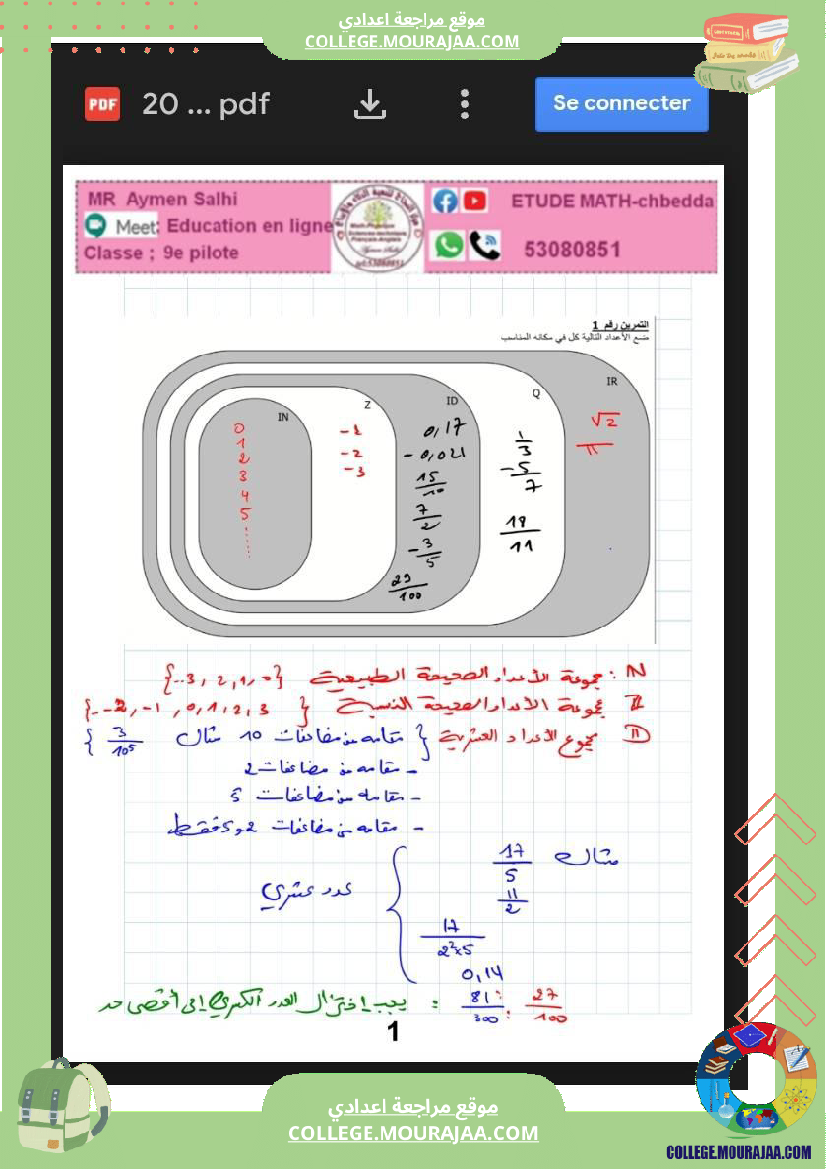 موقع مراجعة اعدادي
COLLEGE.MOURAJAA.COM
PDF 20 ... pdf Se connecter
MR Aymen Salhi
Meet: Education en ligne
Classe ; 9e pilote
ETUDE MATH-chbedda
53080851
التمرين رقم 1
ضع الأعداد التالية كل في مكانه المناسب
IN Z ID Q IR
0
1
2
3
4
5
......
-1
-2
-3
0,17
-0,021
15/10
7/2
-3/5
23/100
1/3
-5/7
18/11
√2
π
N : مجموعة الأعداد الصحيحة الطبيعية {0,1,2,3...}
Z مجموعة الأعداد الصحيحة النسبية { 3 ,2 ,1 ,0 ,-1 ,-2 ..}
ID مجموع الأعداد العشرية { مقامه من مضاعفات 10 مثال 3/10⁵ }
- مقامه من مضاعفات 2
- مقامه من مضاعفات 5
- مقامه من مضاعفات 2 و 5 فقط
مثال 17/5
11/2
عدد عشري
17/2²×5
0,14
27/100 : 81/300 : يجب اختزال العدد الكسري إلى أقصى حد
1
موقع مراجعة اعدادي
COLLEGE.MOURAJAA.COM
COLLEGE.MOURAJAA.COM